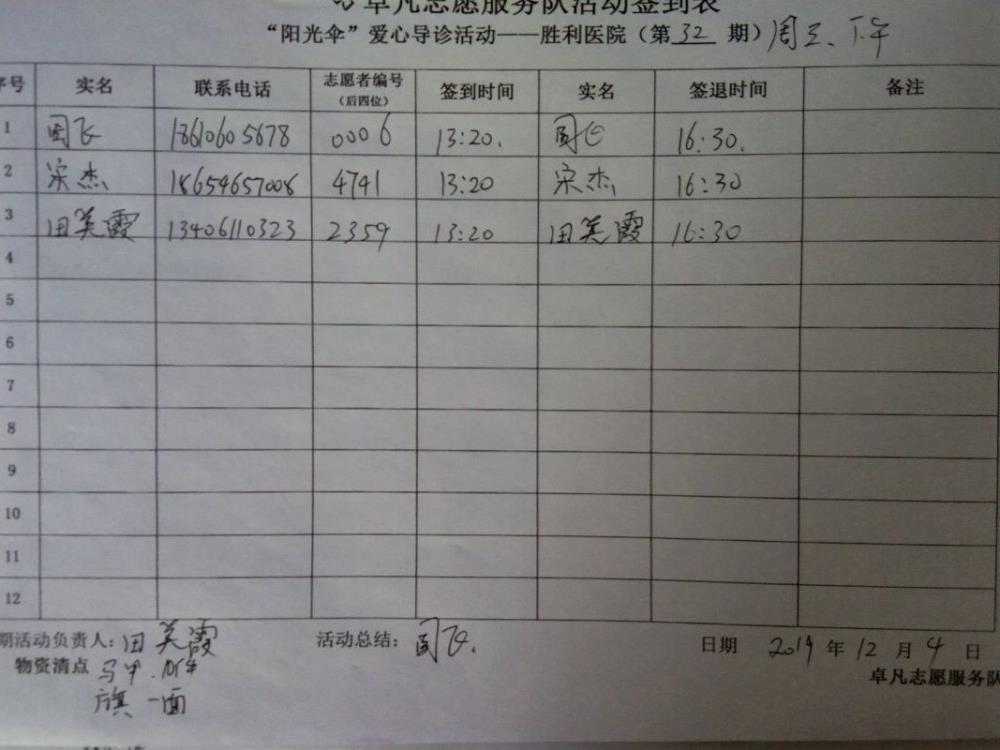 卓凡志愿服务队活动签到表
“阳光伞”爱心导诊活动——胜利医院（第 32 期）周三、下午
序号 实名 联系电话 志愿者编号（后四位） 签到时间 实名 签退时间 备注
1 周飞 18610605678 0006 13:20. 周飞 16:30.
2 宋杰 18654657008 4741 13:20 宋杰 16:30
3 田英霞 13406110323 2359 13:20 田英霞 16:30
4
5
6
7
8
9
10
11
12
期活动负责人：田英霞 活动总结：周飞. 日期 2019 年 12 月 4 日
物资清点 马甲.
旗 一面
卓凡志愿服务队